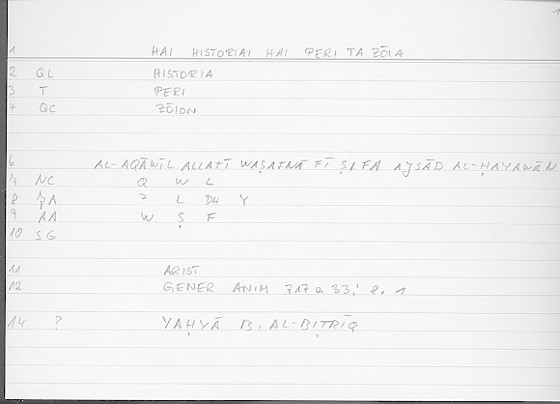 1
1 HAI HISTORIAI HAI PERI TA ZŌIA
2 QL HISTORIA
3 T PERI
4 QC ZŌION
6 AL-AQĀWĪL ALLATĪ WAṢAFNĀ FĪ ṢIFA AJSĀD AL-ḤAYAWĀN
7 NC Q W L
8 L DH Y
9 AA W Ṣ F
10 SG
11 ARIST
12 GENER ANIM 717 a 33; 8. 1
14 ? YAḤYĀ B. AL-BIṬRĪQ